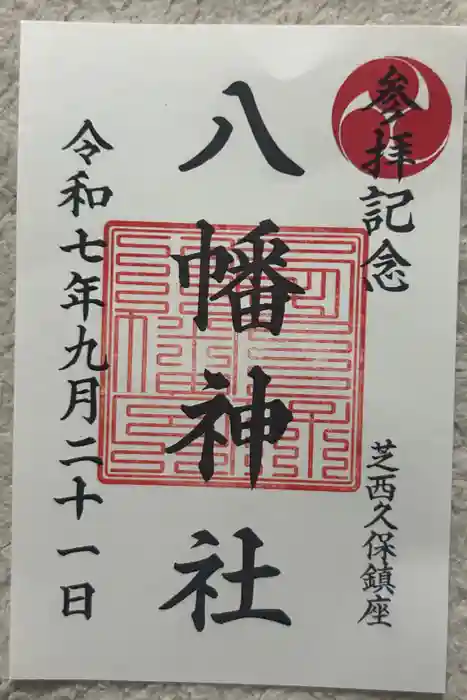 參拝記念
芝西久保鎮座
八幡神社
令和七年九月二十一日